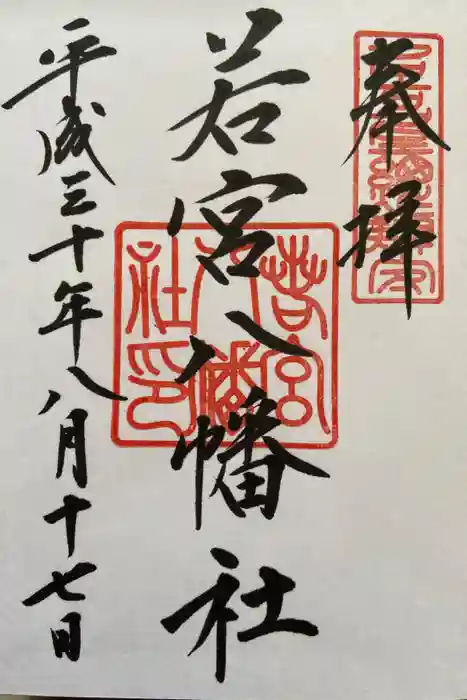 奉拝
若宮八幡社
平成三十年八月十七日
若宮八幡社印